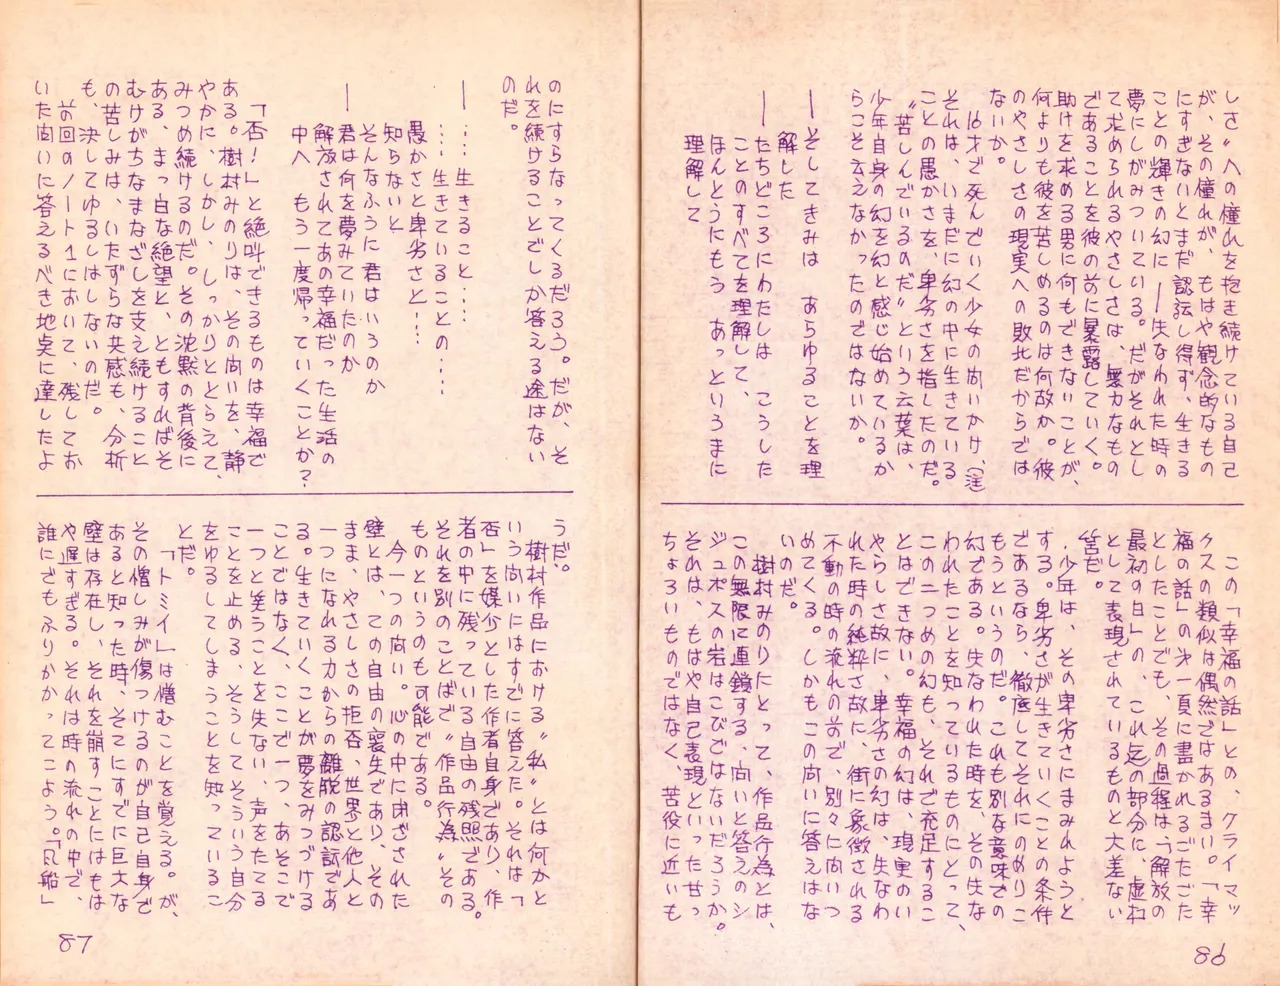 しさ〟への憧れを抱き続けている自己
が、その憧れが、もはや観念的なもの
にすぎないとまだ認識し得ず、生きる
ことの輝きの幻に――失なわれた時の
夢にしがみついている。だがそれとし
て求められるやさしさは、無力なもの
であることを彼の前に暴露していく。
助けを求める男に何もできないことが、
何よりも彼を苦しめるのは何故か。彼
のやさしさの現実への敗北だからでは
ないか。
16才で死んでいく少女の問いかけ、(注)
それは、いまだに幻の中に生きている
ことの愚かさを、卑劣さを指したのだ。
〝苦しんでいるのだ〟という云葉は、
少年自身の幻を幻と感じ始めているか
らこそ云えなかったのではないか。
――そしてきみは あらゆることを理
解した
――たちどころにわたしは こうした
ことのすべてを理解して、
ほんとうにもう あっというまに
理解して
この「幸福の話」との、クライマッ
クスの類似は偶然ではあるまい。「幸
福の話」の第一頁に畫かれるごたごた
としたことでも、その過程は、「解放の
最初の日」の、これ迄の部分に、虚ね
として表現されているものと大差ない
筈だ。
少年は、その卑劣さにまみれようと
する。卑劣さが生きていくことの条件
であるなら、徹底してそれにのめりこ
もうというのだ。これも別な意味での
幻である。失なわれた時を、その失な
われたことを知っているものにとって、
この二つめの幻も、それで充足するこ
とはできない。幸福の幻は、現実のい
やらしさ故に、卑劣さの幻は、失なわ
れた時の純粋さ故に、街に象徴される
不動の時の流れの前で、別々に向いつ
めてくる。しかもこの問いに答えはな
いのだ。
樹村みのりにとって、作品行為とは、
この無限に連鎖する、問いと答えのシ
ジュポスの岩はこびではないだろうか。
それは、もはや自己表現といった甘っ
ちょろいものではなく、苦役に近いも
86
のにすらなってくるだろう。だが、そ
れを続けることでしか答える途はない
のだ。
――……生きること……
……生きていることの……
愚かさと卑劣さと……
知らないと
そんなふうに君はいうのか
――君は何を夢みていたのか
解放されてあの幸福だった生活の
中へ もう一度帰っていくことか?
「否!」と絶叫できるものは幸福で
ある。樹村みのりは、その問いを、静
やかに、しかし、しっかりととらえて、
みつめ続けるのだ。その沈黙の背後に
ある、まっ白な絶望と、ともすればそ
むけがちなまなざしを支え続けること
の苦しみは、いたずらな共感も、分析
も、決してゆるしはしないのだ。
前回のノート1において、残してお
いた問いに答えるべき地点に達したよ
うだ。
樹村作品における〝私〟とは何かと
いう問いにはすでに答えた。それは「
否」を媒介とした作者自身であり、作
者の中に残っている自由の残照である。
それを別のことばで〝作品行為〟その
ものというのも可能である。
今一つの問い。心の中に閉ざされた
壁とは、ての自由の裏生であり、その
まま、やさしさの拒否、世界と他人と
一つになれる力からの離脱の認証であ
る。生きていくことが夢をみつづける
ことではなく、ここで一つ、あそこで
一つと笑うことを失ない、声をたてる
ことを止める、そうしてそういう自分
をゆるしてしまうことを知っているこ
とだ。
「トミイ」は憎むことを覚える。が、
その憎しみが傷つけるのが自己自身で
あると知った時、そこにすでに巨大な
壁は存在し、それを崩すことにはもは
や遅すぎる。それは時の流れの中で、
誰にでもふりかかってこよう。「風船」
87